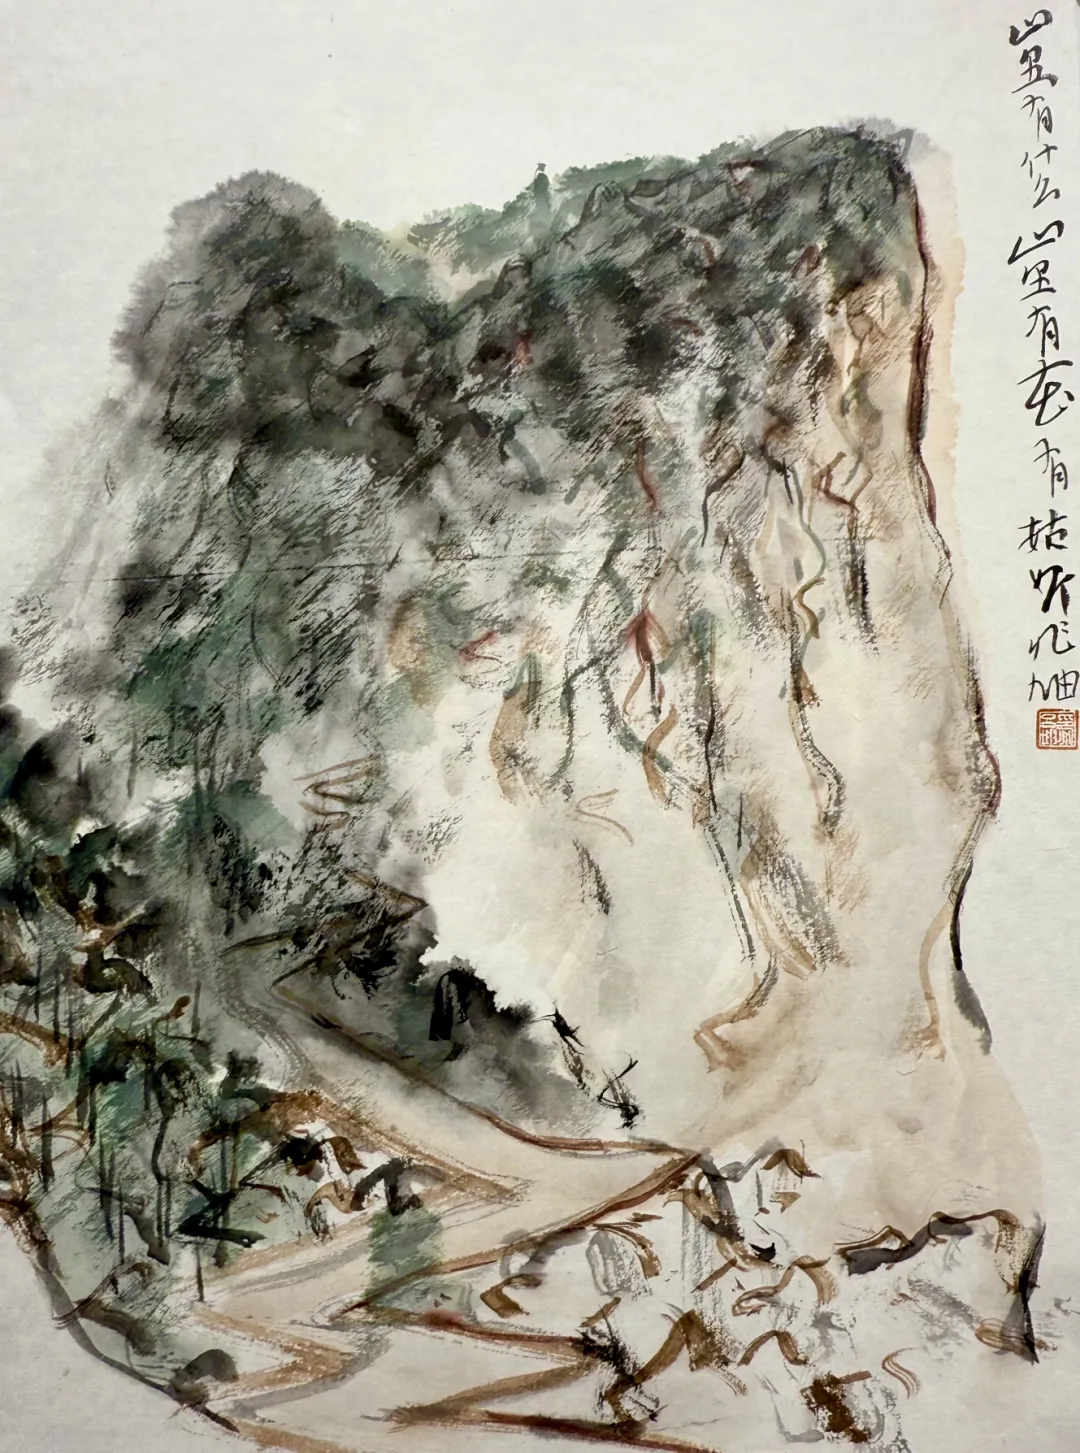 山里有什么山里有花有姑娘